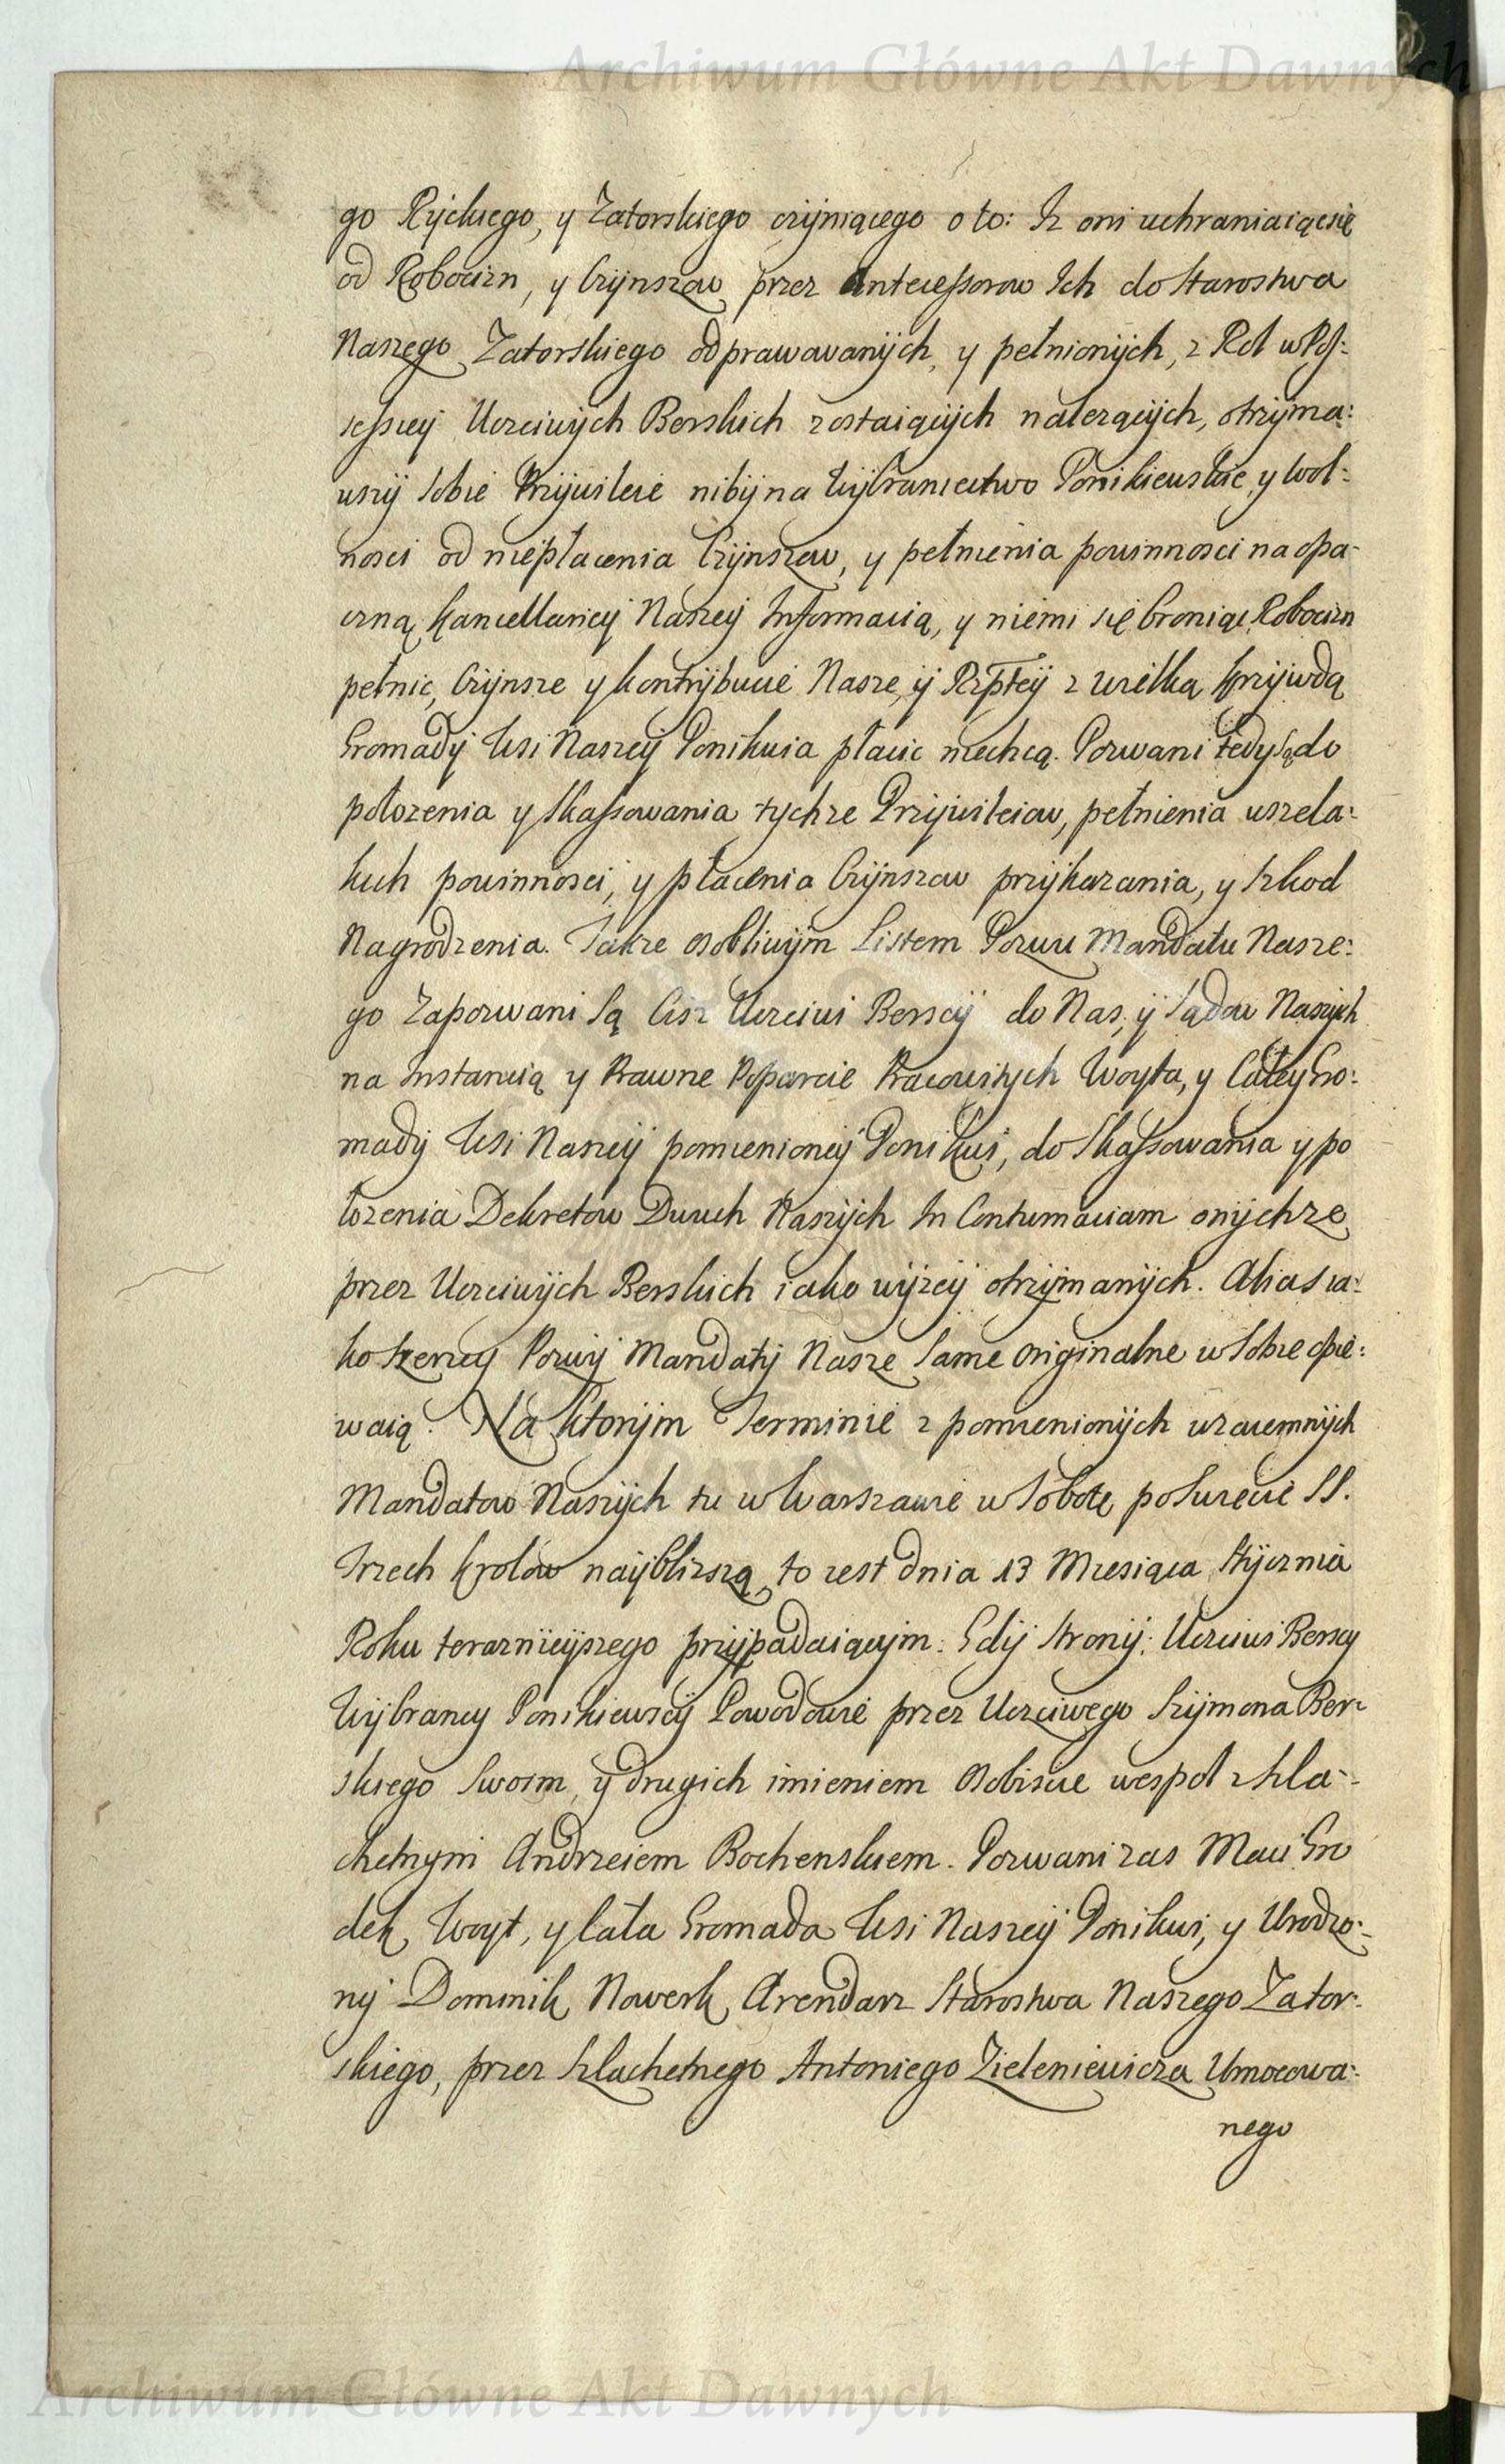 Archiwum Główne Akt Dawnych
go Ryckiego, y Zatorskiego czyniącego o to: Iz oni uchraniaiącsię
od Robocizn, y Czynszow przez Antecessorow Ich do Starostwa
Naszego Zatorskiego odprawowanych, y pełnionych, z Rol w Pos:
sessyey Uczciwych Berskich zostaiących należących, otrzyma:
wszy sobie Przywileie niby na Wybraniectwo Ponikiewskie, y Wol:
nosci od niepłacenia Czynszow, y pełnienia powinnosci na opa-
czną Kancellaryey Naszey Informacią, y niemi się broniąc Robocizn
pełnic, Czynsze y Kontrybucie Nasze, y Rzptey z wielką Krzywdą
Gromady Wsi Naszey Ponikwia płacic niechcą. Pozwani tedy są do
połozenia y Skassowania tychze Przywileiow, pełnienia wszela:
kich powinnosci, y płacenia Czynszow przykazania, y Szkod
Nagrodzenia. Takze osobliwym Listem Pozwu Mandatu Nasze:
go Zapozwani Są Ciz Uczciwi Berscy do Nas, y Sądow Naszych
na Instancią y Prawne Poparcie Pracowitych Woyta, y Całey Gro:
mady Wsi Naszey pomienioney Ponikwi, do Skassowania y po
łozenia Dekretow Dwuch Naszych In Contumaciam onychze
przez Uczciwych Berskich iako wyzey otrzymanych. Alias ia:
ko Szerzey Pozwy Mandaty Nasze Same Originalne w Sobie opie:
waią. Na ktorym Terminie z pomienionych wzaiemnych
Mandatow Naszych tu w Warszawie w Sobotę po Swięcie SS.
Trzech Krolow nayblizszą, to iest dnia 13 Miesiąca Stycznia
Roku teraznieyszego przypadaiącym. Gdy Strony: Uczciwi Berscy
Wybrancy Ponikiewscy Powodowie przez Uczciwego Szymona Ber-
skiego Swoim, y drugich imieniem Osobiscie wespoł z Szla-
chetnym Andrzeiem Bochenskiem. Pozwani zas Maci Gro
dek Woyt, y Cała Gromada Wsi Naszey Ponikwi, y Urodzo:
ny Dominik Nowerk Arendarz Starostwa Naszego Zator:
skiego, przez Szlachetnego Antoniego Zieleniewicza Umocowa:
nego
Archiwum Główne Akt Dawnych